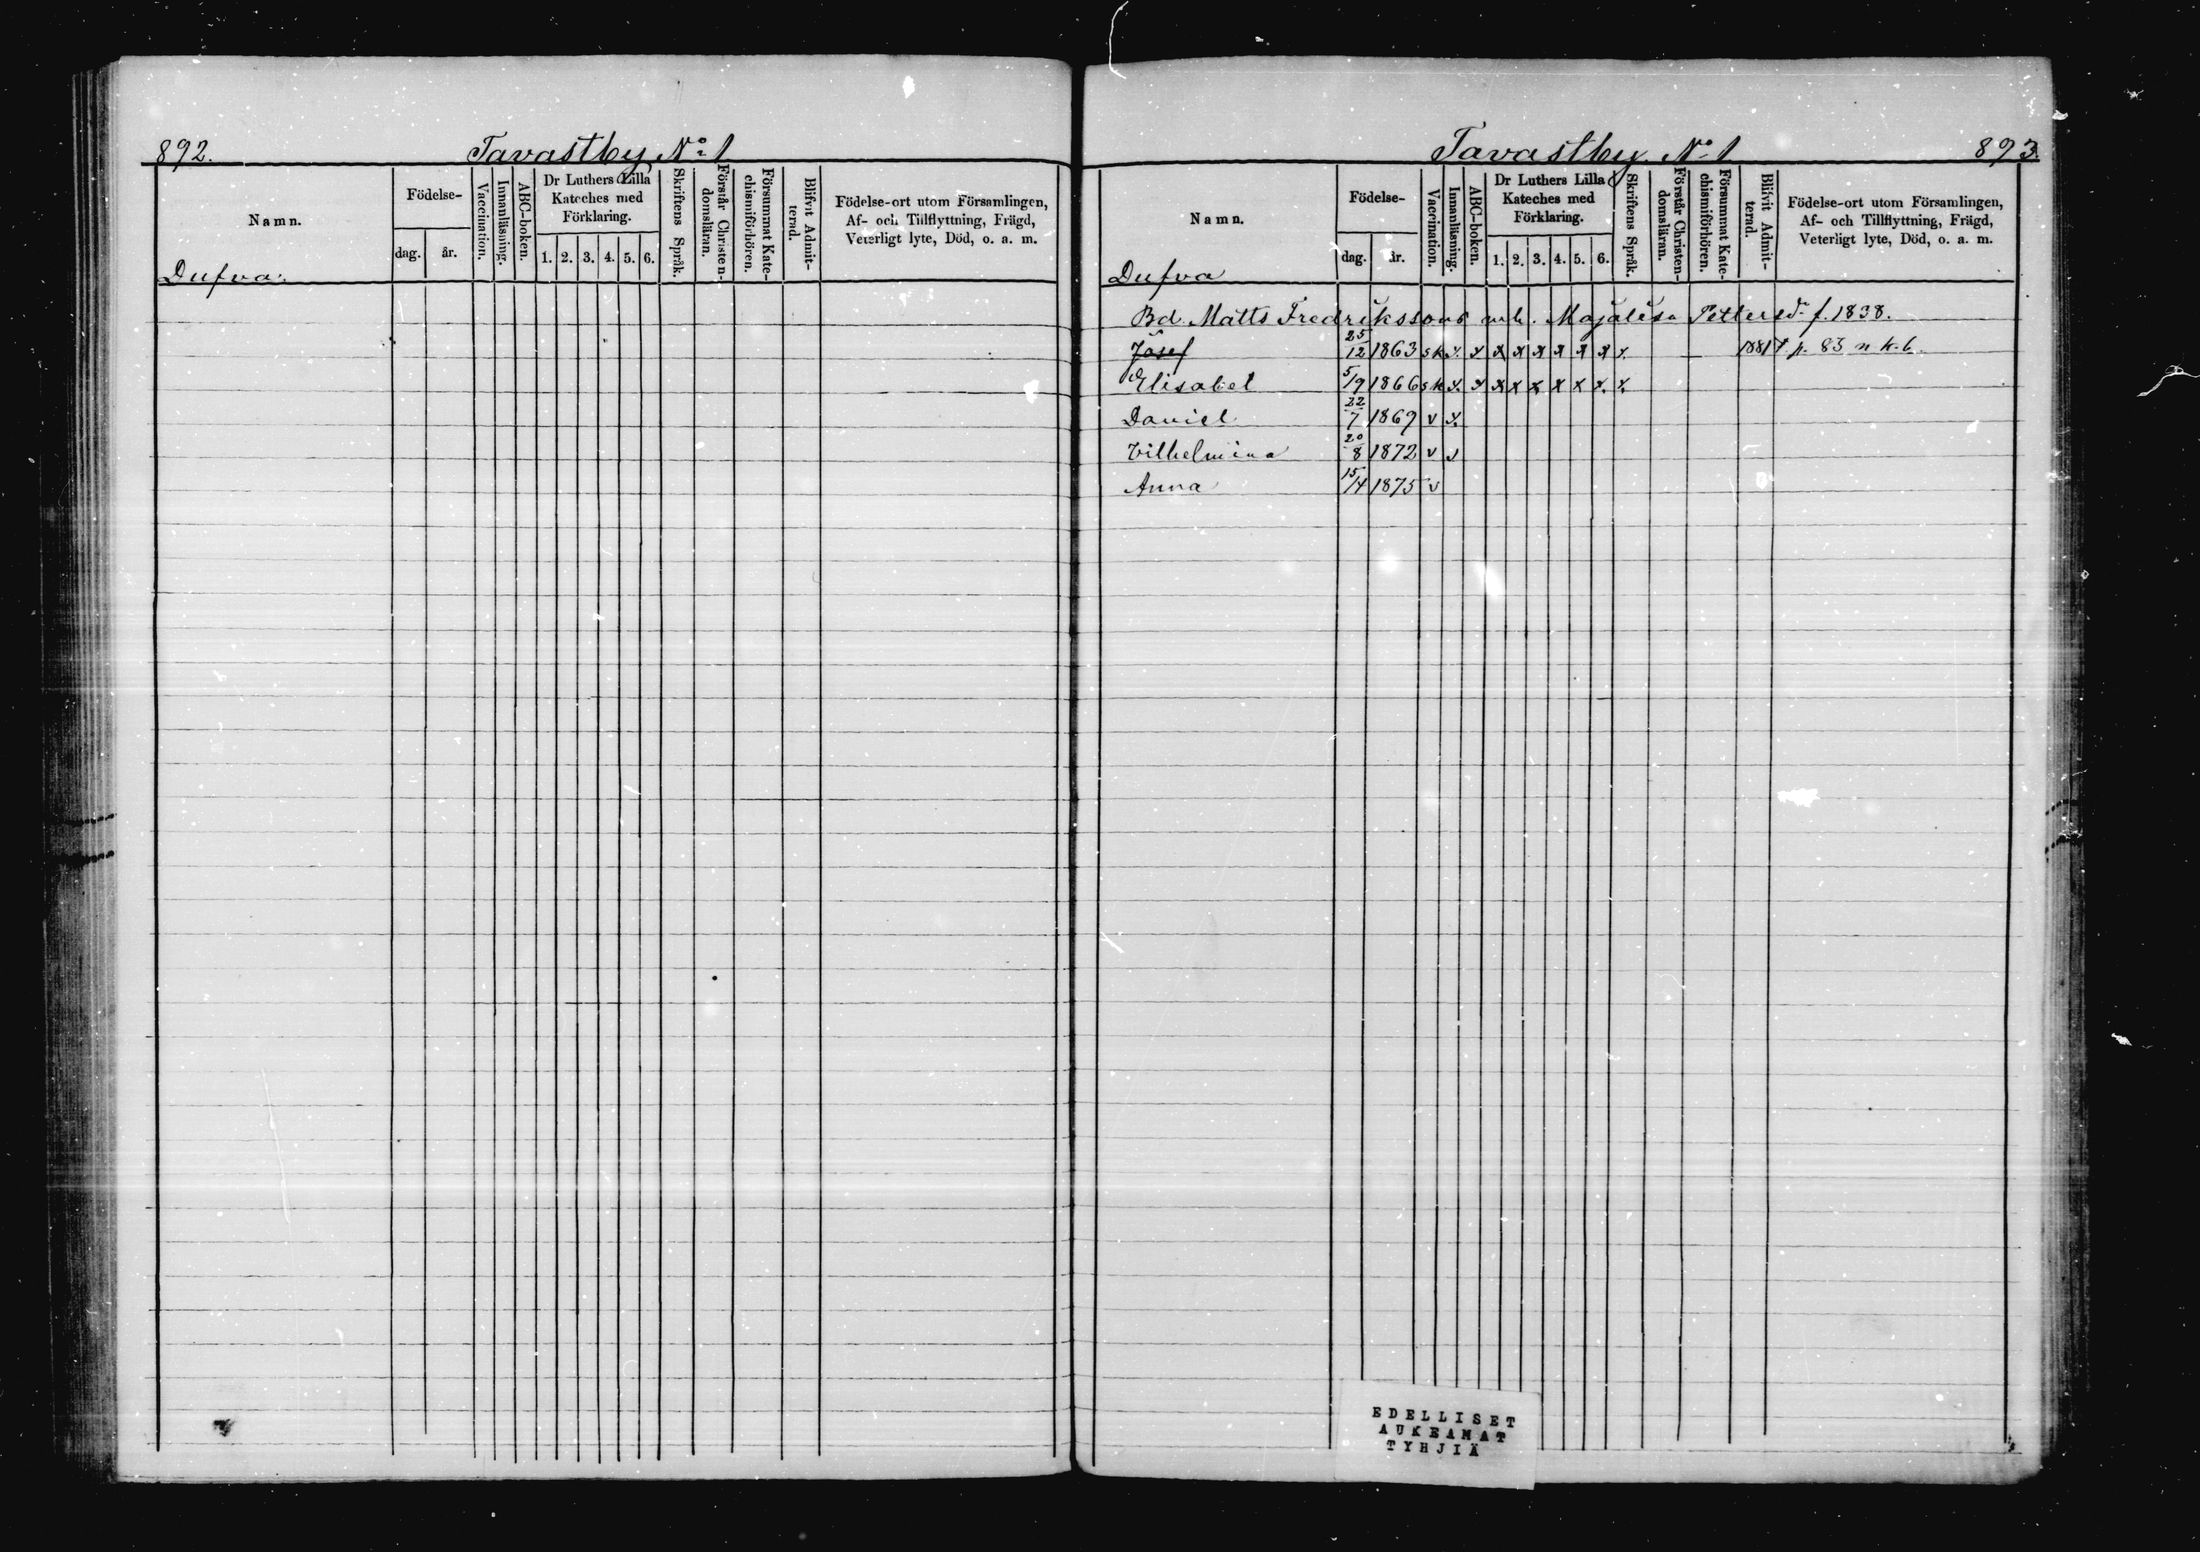 892.
Tavastby No 1
Namn.
Födelse-
dag.
år.
Vaccination.
Innanläsning.
ABC-boken.
Dr Luthers Lilla
Kateches med
Förklaring.
1. 2. 3. 4. 5. 6.
Skriftens Språk.
Förstår Christen-
domsläran.
Försummat Kate-
chismiförhören.
Blifvit Admit-
terad.
Födelse-ort utom Församlingen,
Af- och Tillflyttning, Frägd,
Veterligt lyte, Död, o. a. m.
Dufva.
Tavastby No 1
893.
Namn.
Födelse-
dag.
år.
Vaccination.
Innanläsning.
ABC-boken.
Dr Luthers Lilla
Kateches med
Förklaring.
1. 2. 3. 4. 5. 6.
Skriftens Språk.
Förstår Christen-
domsläran.
Försummat Kate-
chismiförhören.
Blifvit Admit-
terad.
Födelse-ort utom Församlingen,
Af- och Tillflyttning, Frägd,
Veterligt lyte, Död, o. a. m.
Dufva
Bd. Matts Fredrikssons m.h. Majalisa Pettersd. f. 1838.
Josef 25/12 1863 sk x x x x x x x x x 1881 p. 83 n k. b.
Elisabet 5/9 1866 sk x x x x x x x x x
Daniel 22/7 1869 v x
Vilhelmina 20/8 1872 v
Anna 15/4 1875 v
EDELLISET
AUKEAMAT
TYHJIÄ